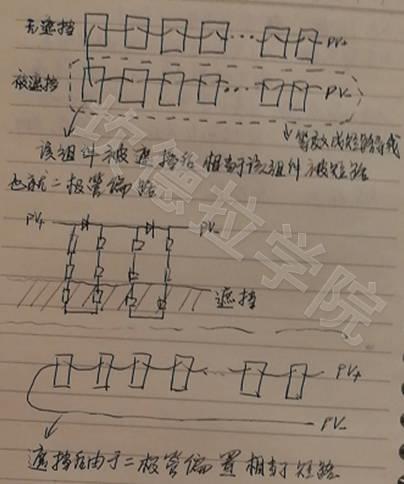 无遮挡 PV+
被遮挡 PV-
等效成短路导线
该组件被遮挡后相当于该组件被短路
也就二极管偏路
PV+ PV-
遮挡
PV+
PV-
遮挡后由于二极管偏置相当于短路
坎德拉学院